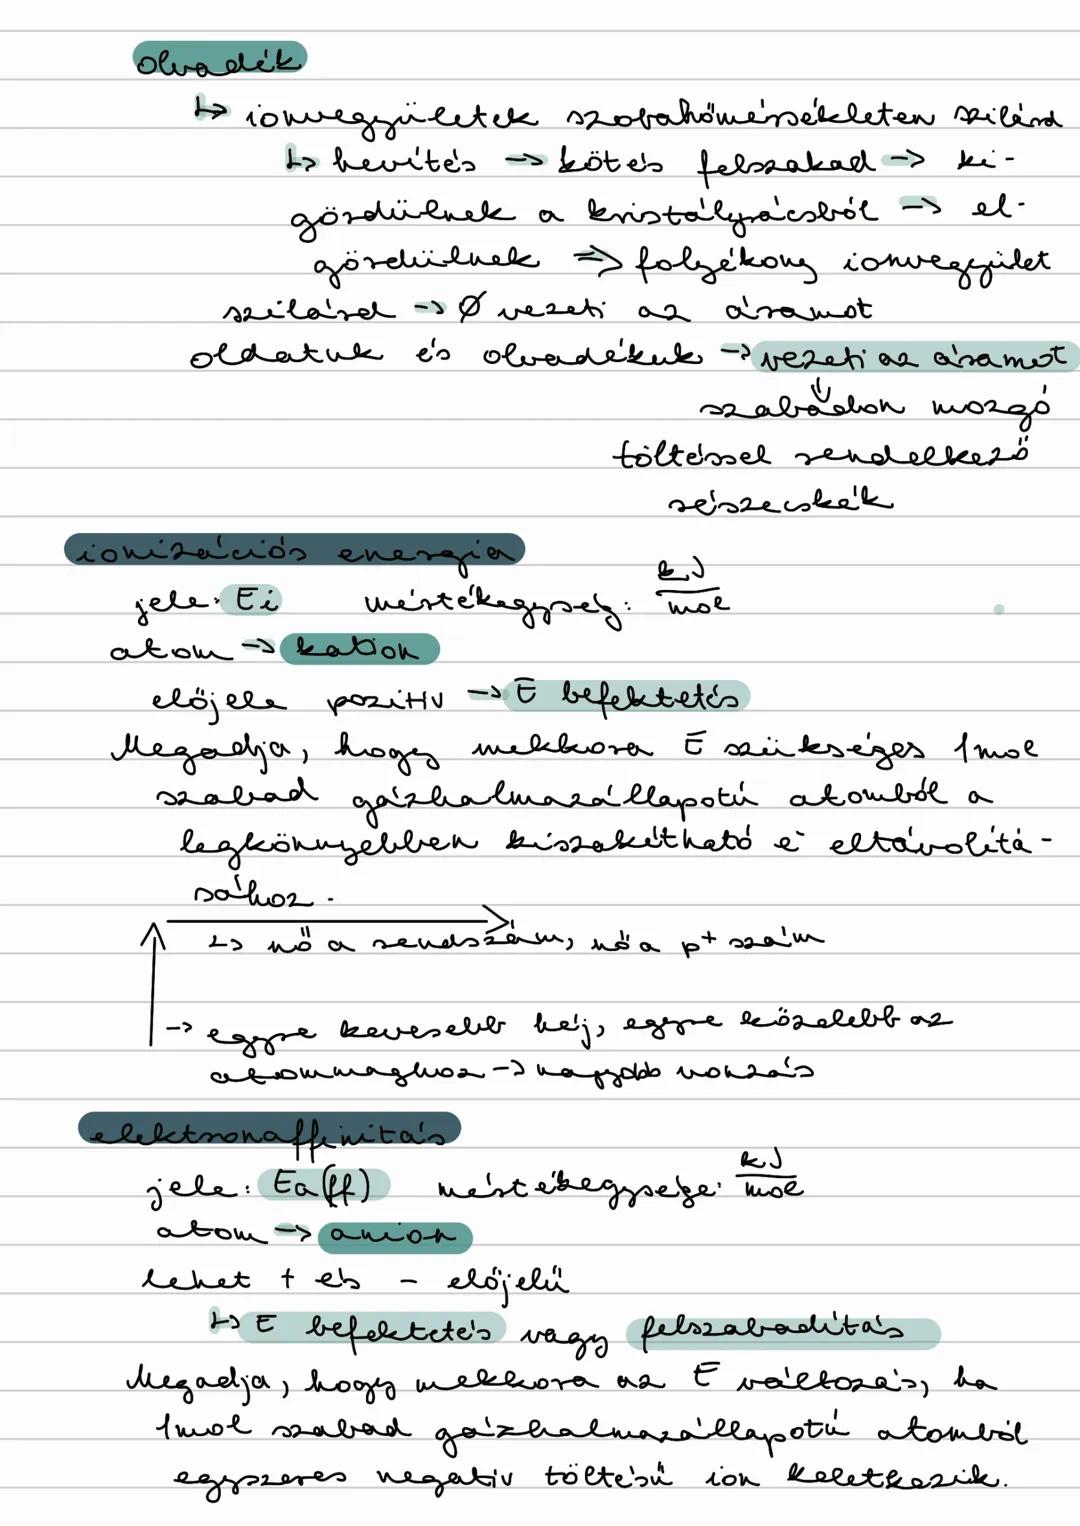 olvadék
↳ ionvegyületek szobahőmérsékleten szilárd
↳ hevítés → kötés felszakad → ki-
gördülnek a kristályrácsból → el-
gördülnek ⇒ folyékony ionvegyület
szilárd → Ø vezeti az áramot
oldatuk és olvadékuk → vezeti az áramot
⇓
szabadon mozgó
töltéssel rendelkező
részecskék
ionizációs energia
jele: Ei mértékegység: kJ/mol
atom → kation
előjele pozitív → E befektetés
Megadja, hogy mekkora E szükséges 1mol
szabad gázhalmazállapotú atomból a
legkönnyebben kiszakítható e⁻ eltávolítá-
sához.
↳ nő a rendszám, nő a p+ szám
→ egyre kevesebb héj, egyre közelebb az
atommaghoz → nagyobb vonzás
elektronaffinitás
jele: Ea(ff) mértékegysége: kJ/mol
atom → anion
lehet + és - előjelű
↳ E befektetés vagy felszabadítás
Megadja, hogy mekkora az E változás, ha
1mol szabad gázhalmazállapotú atomból
egyszeres negatív töltésű ion keletkezik.